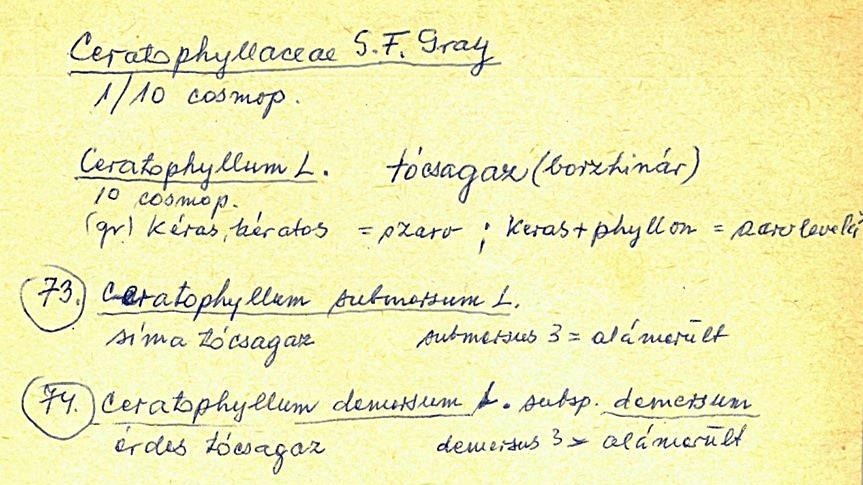 Ceratophyllaceae S.F. Gray
1/10 cosmop.
Ceratophyllum L. tócsagaz (borzhinár)
10 cosmop.
(gr) Kéras, kératos = szarv ; Keras + phyllon = szarvlevelű
73. Ceratophyllum submersum L.
síma tócsagaz submersus 3 = alámerült
74. Ceratophyllum demersum L. subsp. demersum
érdes tócsagaz demersus 3 = alámerült